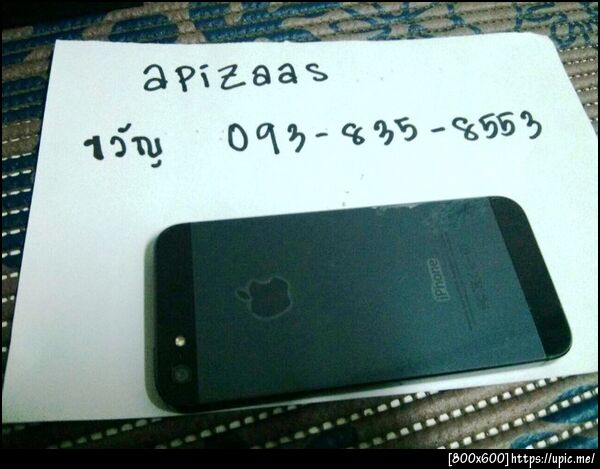 apizaas
ขวัญ 093-835-8553
iPhone
[800x600]https://upic.me/